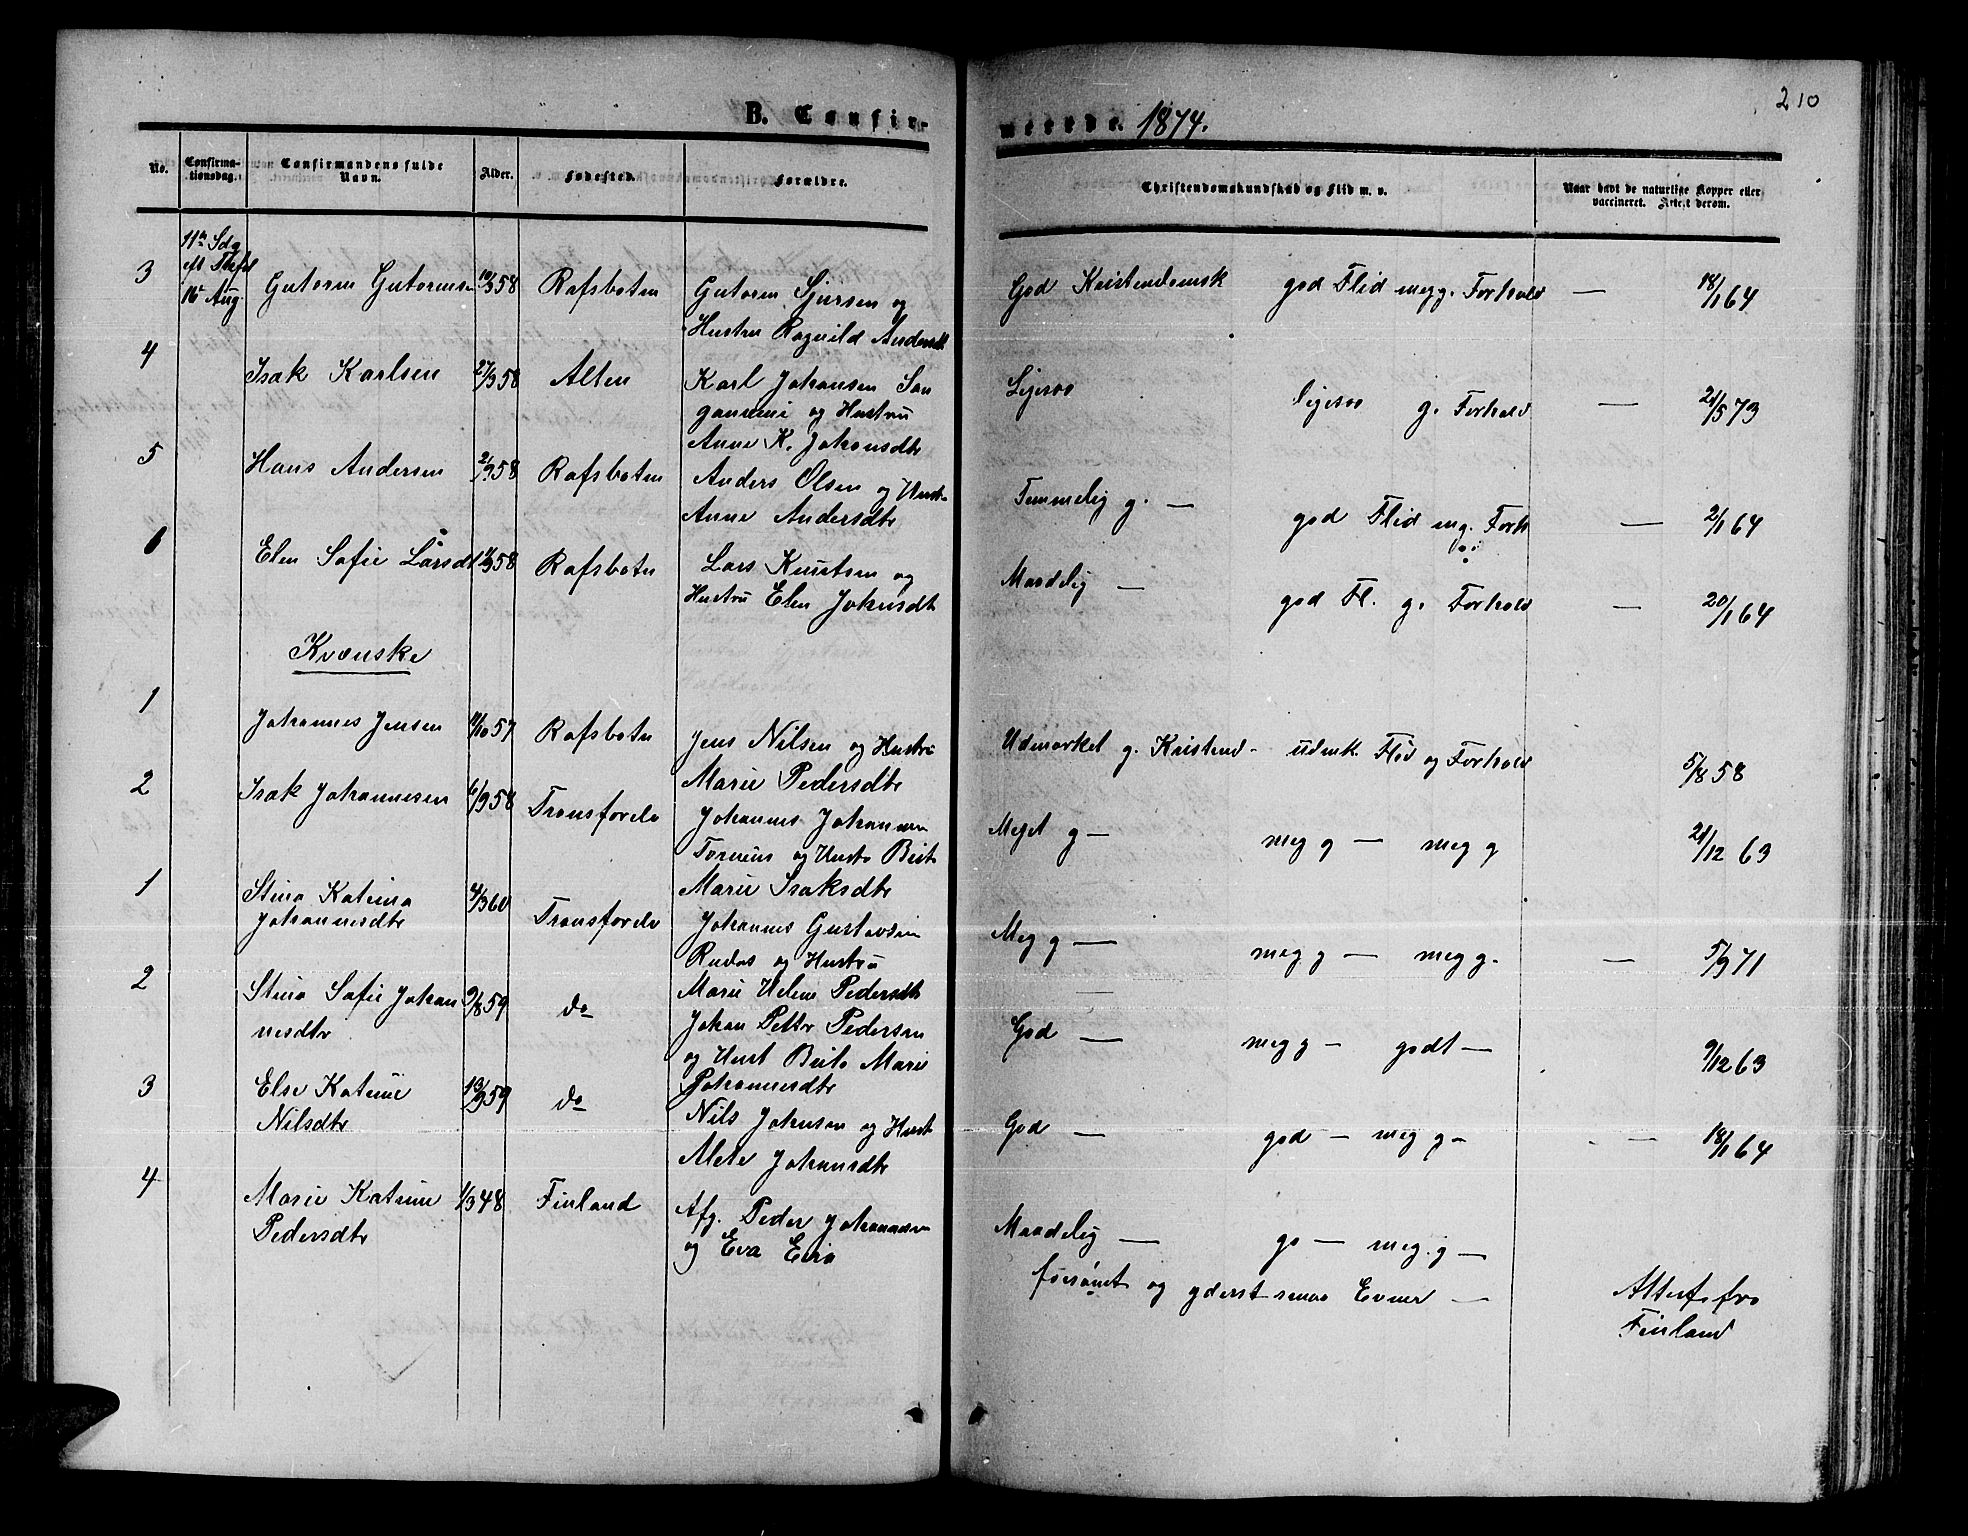 B. Confir-
merede. 1874.
210
No.
Confirma-
tionsdag.
Confirmandens fulde
Navn.
Alder.
Fødested.
Forældre.
Christendomskundskab og Flid m. v.
Naar havt de naturlige Kopper eller
vaccineret. Attest derom.
11te Sdg
eft Trefol
16 Aug.
3 Gutorm Gutormsen 10/3 58 Rafsboten Gutorm Sjursen og
Hustru Ragnild Andersdt
God Kristendomsk god Flid meg g. Forhold — 18/1 64
4 Isak Karlsen 27/3 58 Alten Karl Johansen San
ganiemi og Hustru
Anne K. Johansdtr
Ligesaa ligesaa g. Forhold — 21/5 73
5 Hans Andersen 21/9 58 Rafsboten Anders Olsen og Hust-
Anne Andersdtr
Temmelig g. — god Flid mg. Forh — 2/1 64
6 Elen Sofie Larsdt 4/9 58 Rafsbotn Lars Knutsen og
Hustru Elen Johnsdtr
Maadelig — god Fl. g. Forhold — 20/1 64
Kvænske
1 Johannes Jensen 11/10 57 Rafsbotn Jens Nilsen og Hustru
Marie Pedersdtr
Udmærket g. Kristend- udmk Flid og Forhold 5/8 58
2 Isak Johannesen 6/9 58 Transfarelv Johannes Johannesen
Tornæus og Hustr Brita
Marie Isaksdtr
Meget g — meg g — meg g 21/12 63
1 Stina Katrina
Johannesdtr
4/3 60 Transfarelv Johannes Gustavsen
Rudas og Hustru
Marie Helene Pedersdtr
Meg g — meg g — meg g. — 5/9 71
2 Stina Sofie Johan
nesdtr
9/8 59 do Johan Petter Pedersen
og Hust Brita Marie
Johannesdtr
God — meg g — godt — 9/12 63
3 Else Katrine
Nilsdtr
13/9 59 do Nils Johnsen og Hust
Mete Johansdtr
God — god — meg g — — 18/1 64
4 Marie Katrine
Pedersdtr
1/3 48 Finland Afg. Peder Johannesen
og Eva Eira
Maadelig — go — meg. g —
forsømt og yderst smaa Evner —
Attest fra
Finland